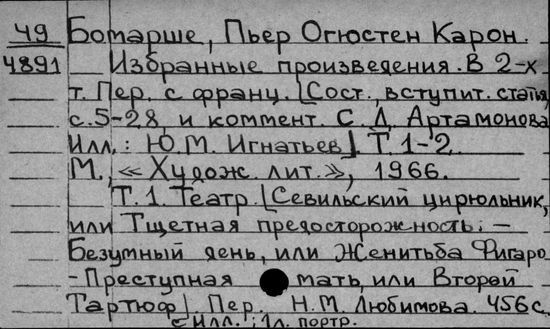 49 Бомарше, Пьер Огюстен Карон.
4891 Избранные произведения. В 2-х
т. Пер. с франц. [Сост., вступит. статья,
с. 5-28, и коммент. С. Д. Артамонова
Илл.: Ю. М. Игнатьев]. Т. 1-2.
М., «Худож. лит.», 1966.
Т. 1. Театр. [Севильский цирюльник,
или Тщетная предосторожность. –
Безумный день, или Женитьба Фигаро
- Преступная мать, или Второй
Тартюф] Пер. Н. М. Любимова. 456 с.
с илл.; 1 л. портр.